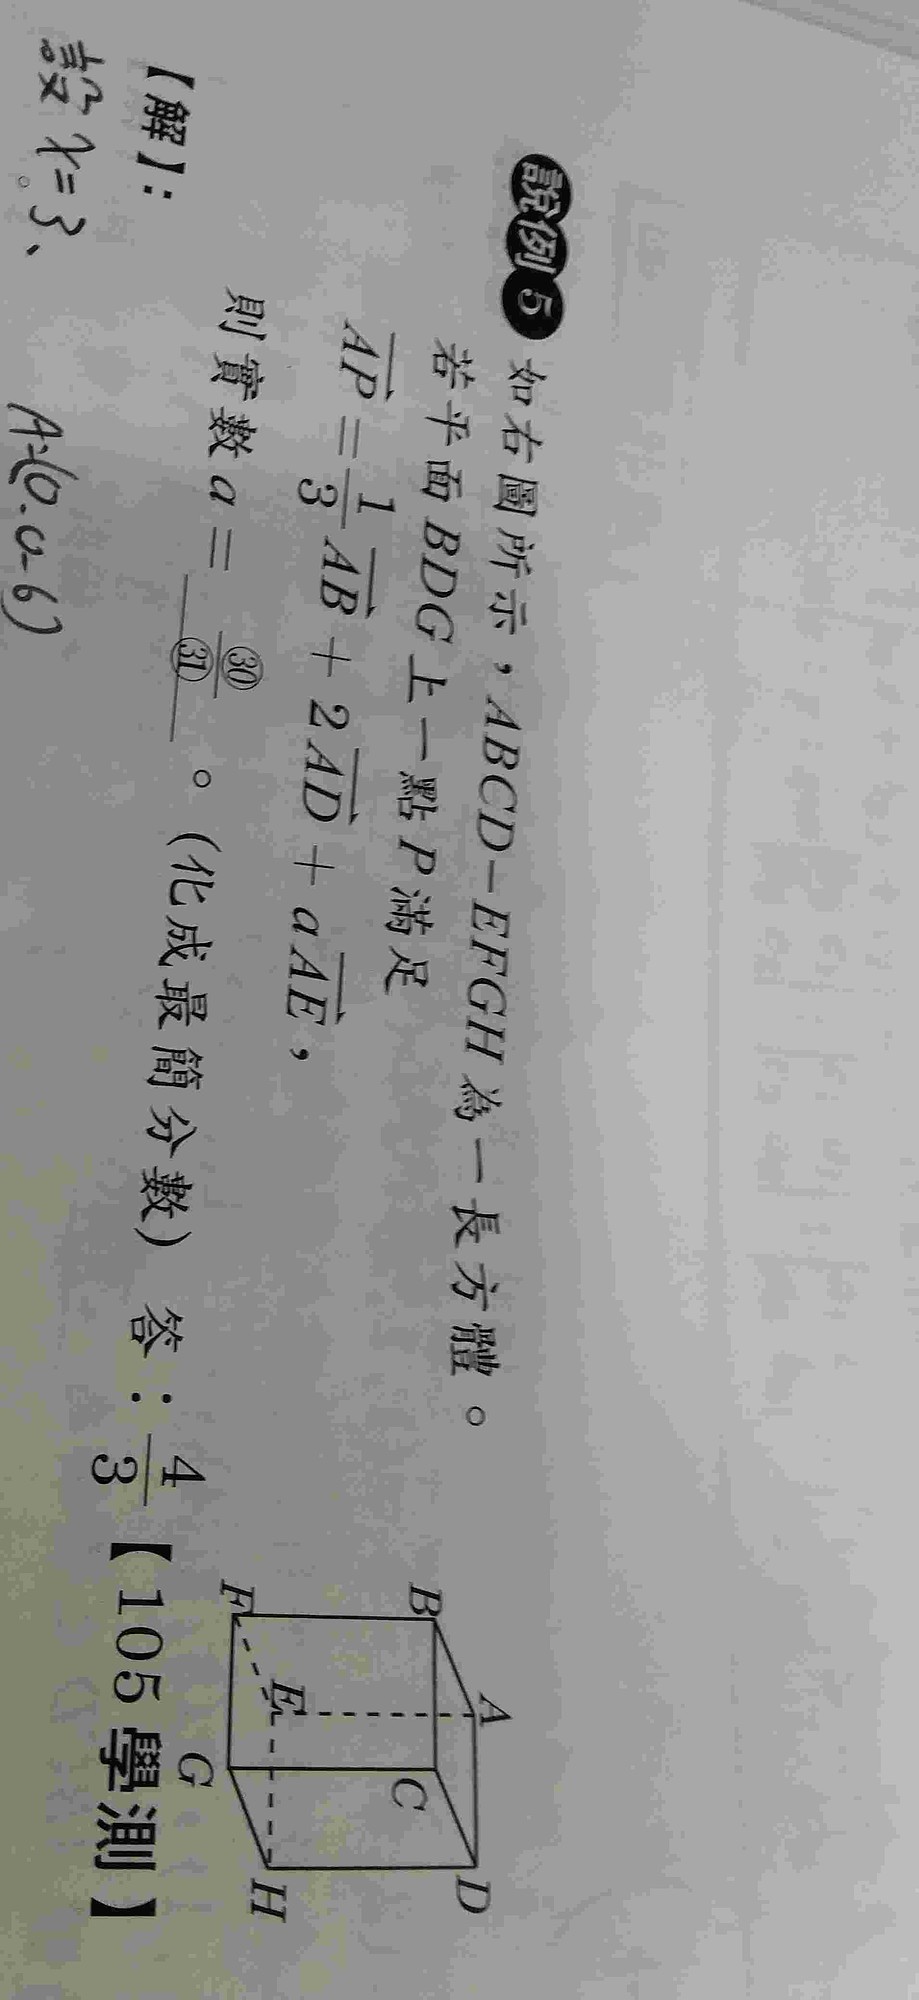 說例5 如右圖所示，ABCD−EFGH為一長方體。
若平面BDG上一點P滿足
AP = 1/3 AB + 2AD + aAE，
則實數a = ㉚/㉛ 。(化成最簡分數) 答：4/3【105學測】
【解】：
設
A
B
C
D
E
F
G
H